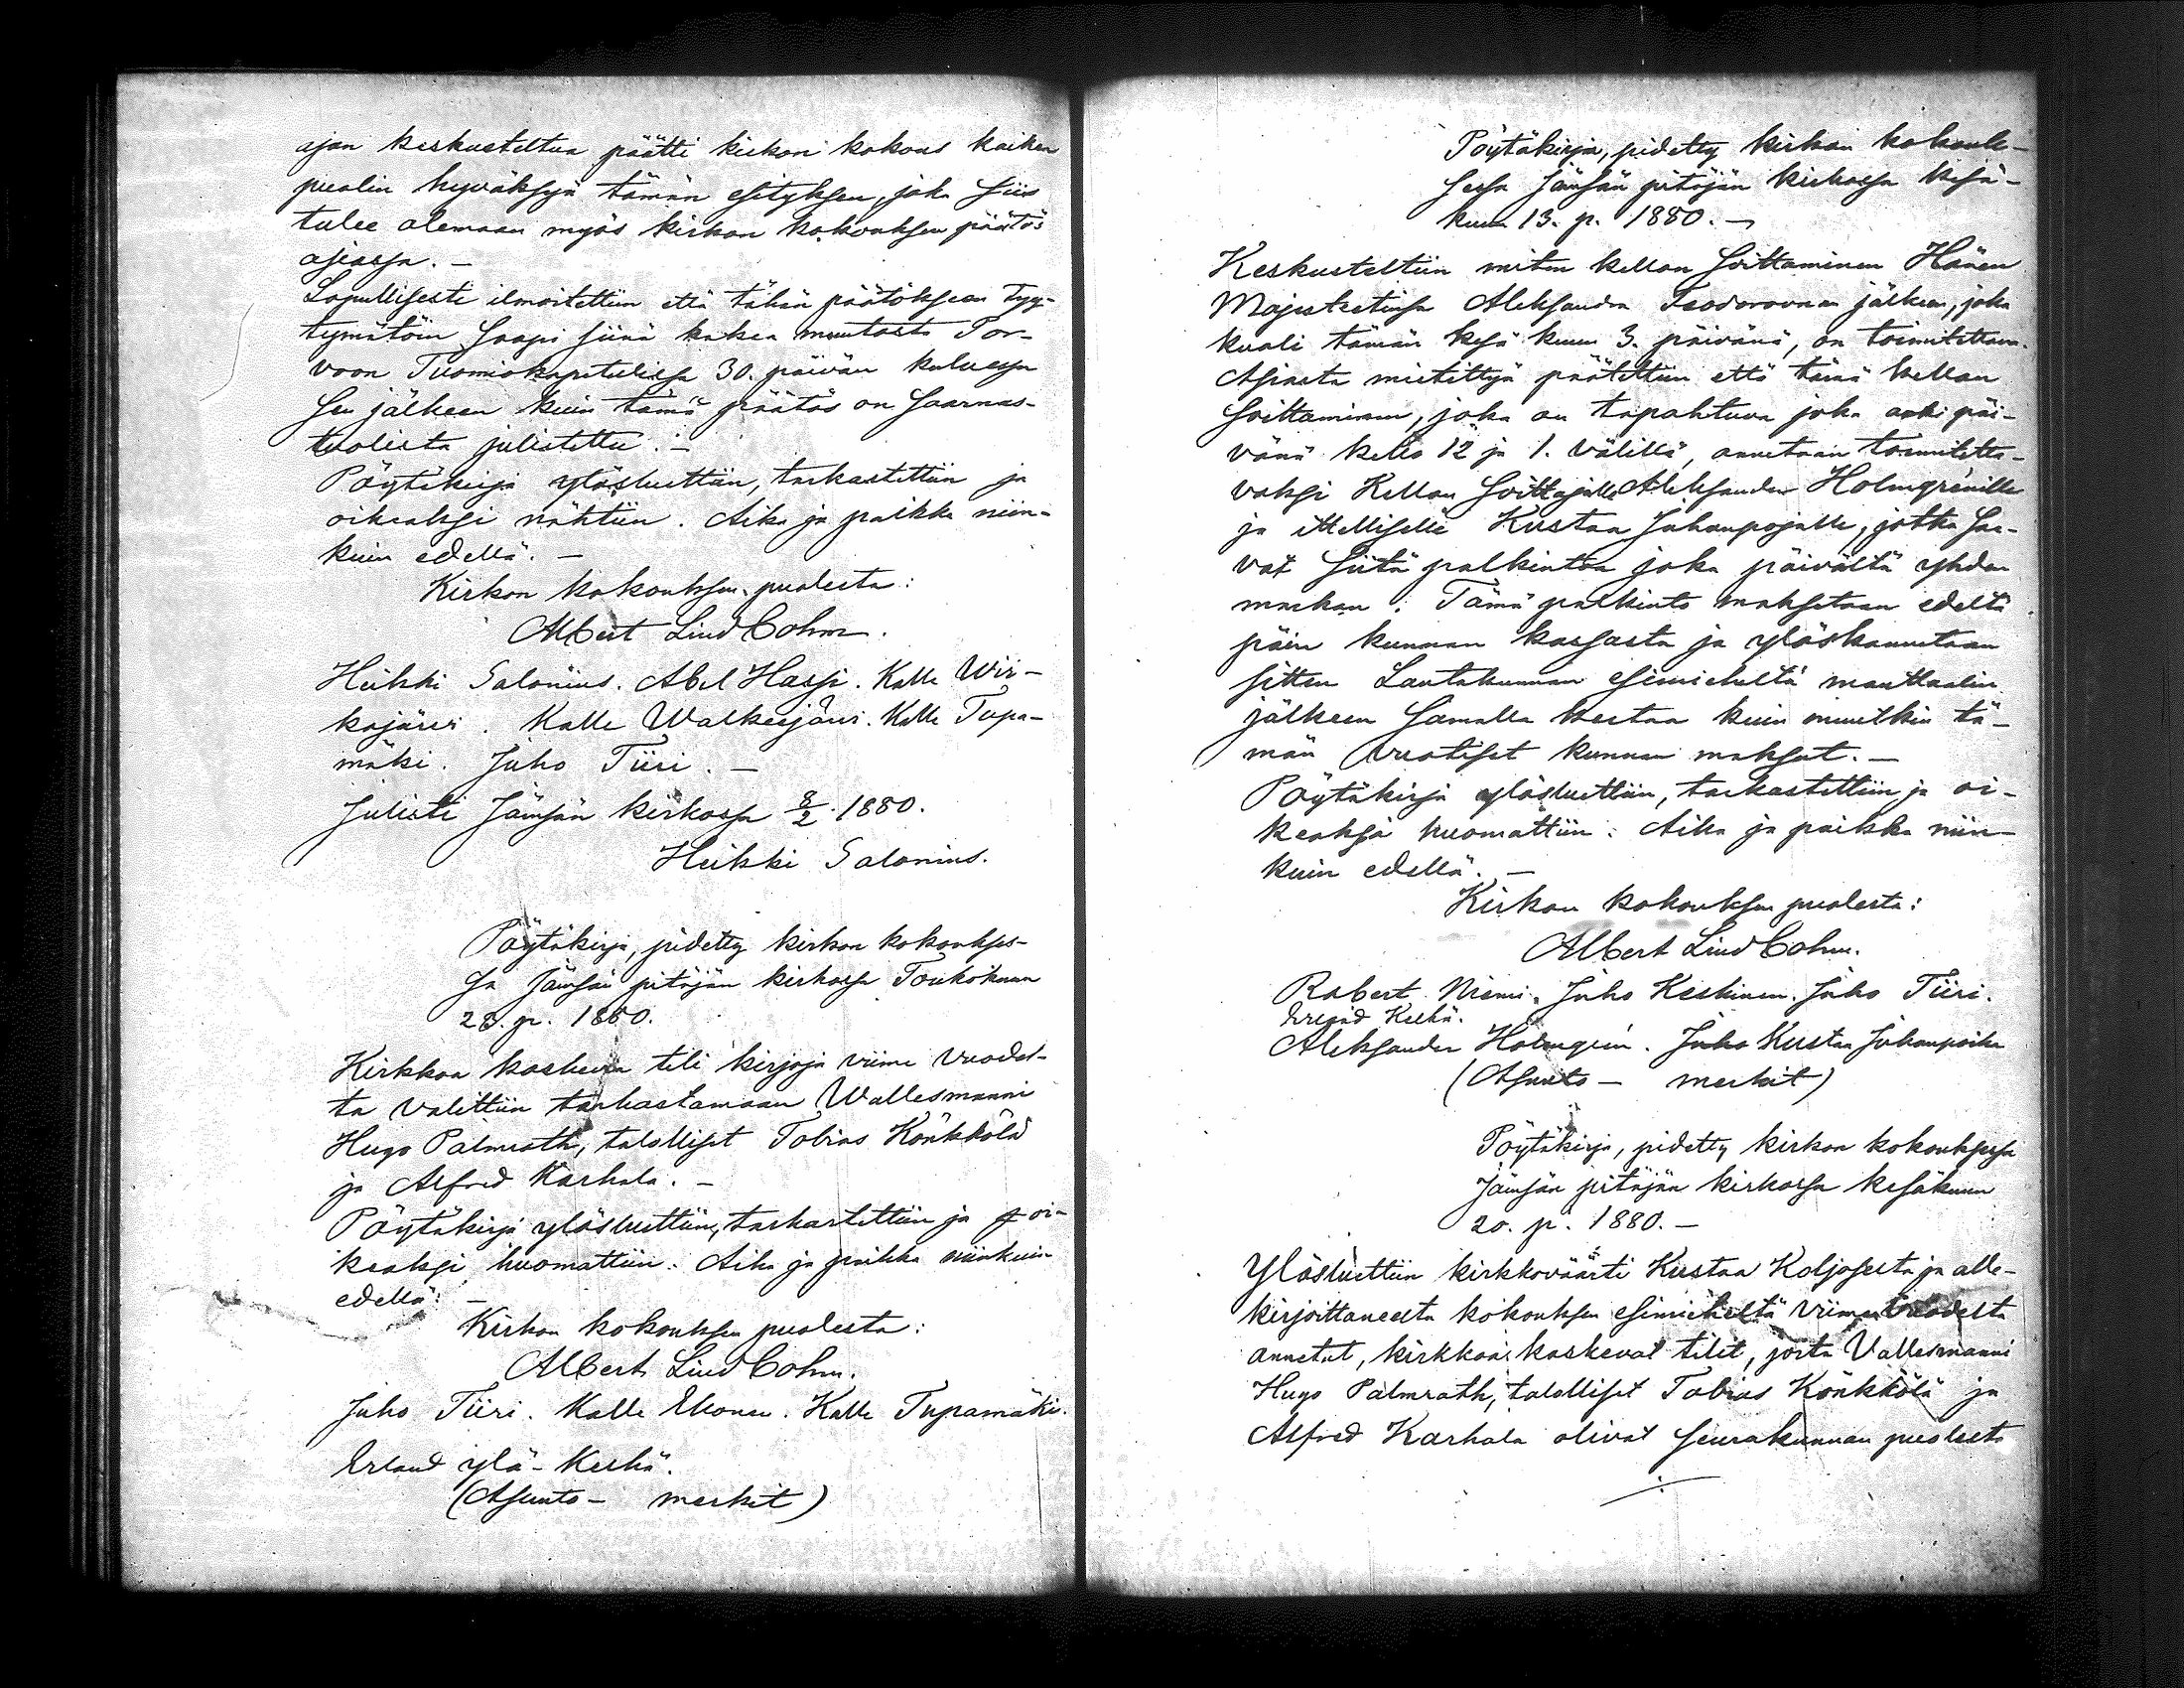 ajan keskusteltua päätti kirkon kokous kaiken
puolin hyväksyä tämän esityksen, joka siis
tulee olemaan myös kirkon kokouksen päätös
asiassa. —
Lopullisesti ilmoitettiin että tähän päätökseen tyy-
tymätöin saapi siinä hakea muutosta Por-
voon Tuomiokapitulissa 30. päivän kuluessa
sen jälkeen kuin tämä päätös on saarnas-
tuolista julistettu. —
Pöytäkirja ylösluettiin, tarkastettiin ja
oikeaksi nähtiin. Aika ja paikka niin-
kuin edellä. —
Kirkon kokouksen puolesta:
Albert Lindbohm.
Heikki Salonius. Abel Hassi. Kalle Wir-
kajärvi. Kalle Walkeejärvi. Kalle Tupa-
mäki. Juho Tiiri. —
Julisti Jämsän kirkossa 8/2 1880.
Heikki Salonius.
Pöytäkirja, pidetty kirkon kokoukses-
sa Jämsän pitäjän kirkossa Toukokuun
23. p. 1880.
Kirkkoa koskevia tili kirjoja viime vuodes-
ta valittiin tarkastamaan Wallesmanni
Hugo Palmroth, talolliset Tobias Könkkölä
ja Alfred Karhala. —
Pöytäkirja ylösluettiin, tarkastettiin ja oi-
keaksi huomattiin. Aika ja paikka niinkuin
edellä. —
Kirkon kokouksen puolesta:
Albert Lindbohm.
Juho Tiiri. Kalle Ekonen. Kalle Tupamäki.
Erland ylä-Kerhä.
(Asunto- merkit)
Pöytäkirja, pidetty kirkon kokouk-
sessa Jämsän pitäjän kirkossa kesä-
kuun 13. p. 1880. —
Keskusteltiin miten kellon soittaminen Hänen
Majesteetinsa Aleksandra Feodorovnan jälkeen, joka
kuoli tämän kesä kuun 3. päivänä, on toimitettava.
Asiasta mietittyä päätettiin että tämä kellon
soittaminen, joka on tapahtuva joka arki päi-
vänä kello 12 ja 1. välillä, annetaan toimitetta-
vaksi Kellon soittajalle Aleksander Holmgrénille
ja ittelliselle Kustaa Juhanpojalle, jotka saa-
vat siitä palkintoa joka päivältä yhden
markan. Tämä palkinto maksetaan edeltä
päin kunnan kassasta ja ylöskannetaan
sitten Lautakunnan esimieheltä manttaalin
jälkeen samalla kertaa kuin muutkin tä-
män vuotiset kunnan maksut. —
Pöytäkirja ylösluettiin, tarkastettiin ja oi-
keaksi huomattiin. Aika ja paikka niin-
kuin edellä. —
Kirkon kokouksen puolesta:
Albert Lindbohm.
Robert Niemi. Juho Keskinen. Juho Tiiri.
Erland Kerhä.
Aleksander Holmgrén. Juho Kustaa Juhanpoika
(Asunto- merkit)
Pöytäkirja, pidetty kirkon kokouksessa
Jämsän pitäjän kirkossa kesäkuun
20. p. 1880. —
Ylösluettiin kirkkoväärti Kustaa Koljosesta ja alle-
kirjoittaneelta kokouksen esimieheltä viime vuodelta
annetut, kirkkoa koskevat tilit, joita Vallesmanni
Hugo Palmroth, talolliset Tobias Könkkölä ja
Alfred Karhala olivat seurakunnan puolesta